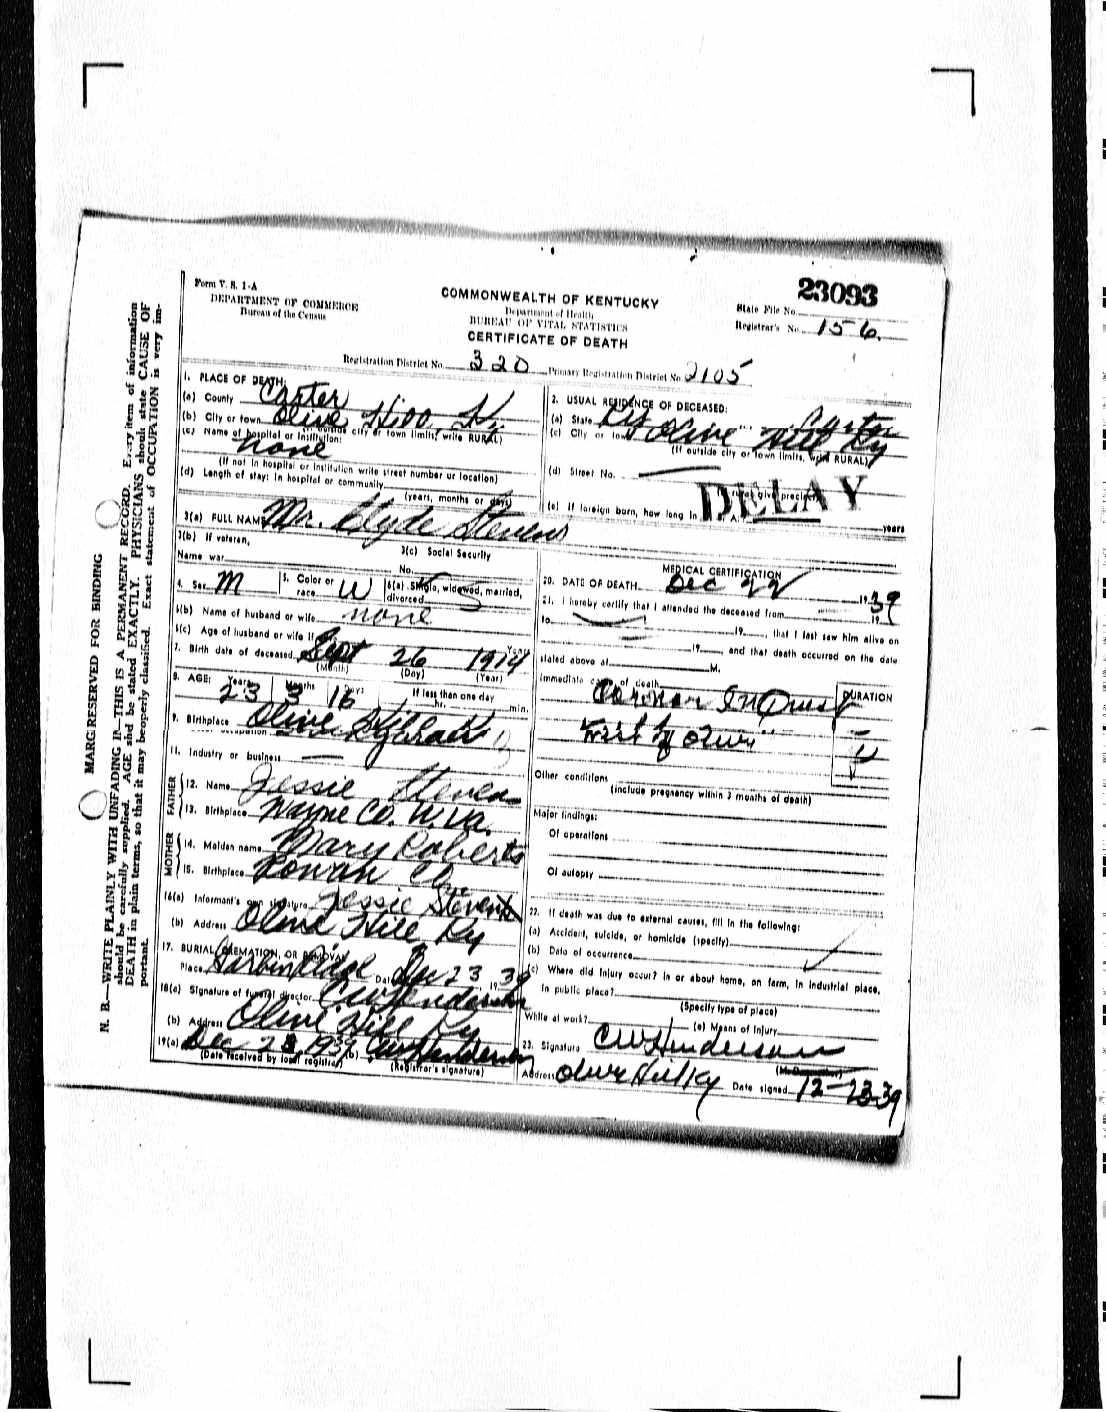 Form V. S. 1-A
DEPARTMENT OF COMMERCE
Bureau of the Census
COMMONWEALTH OF KENTUCKY
Department of Health
BUREAU OF VITAL STATISTICS
CERTIFICATE OF DEATH
23093
State File No.
Registrar's No. 156.
Registration District No. 320 Primary Registration District No. 2105
1. PLACE OF DEATH:
(a) County Carter
(b) City or town Olive Hill, Ky.
(If outside city or town limits, write RURAL)
(c) Name of hospital or institution:
none
(If not in hospital or institution write street number or location)
(d) Length of stay: in hospital or community
(years, months or days)
2. USUAL RESIDENCE OF DECEASED:
(a) State Ky Carter
(c) City or town Olive Hill Ky
(If outside city or town limits, write RURAL)
(d) Street No.
DELAY
(e) If foreign born, how long in U. S. A. years
3(a) FULL NAME Mr. Clyde Stevens
3(b) If veteran,
Name war
3(c) Social Security
No.
4. Sex M
5. Color or race W
6(a) Single, widowed, married, divorced
6(b) Name of husband or wife none
6(c) Age of husband or wife if Years
7. Birth date of deceased Sept 26 1914
(Month) (Day) (Year)
8. AGE: Years Months Days If less than one day
23 3 16 hr. min.
9. Birthplace Olive Hill
11. Industry or business
FATHER
12. Name Jessie Stevens
13. Birthplace Wayne Co. W. Va.
MOTHER
14. Maiden name Mary Roberts
15. Birthplace Rowan Co
16(a) Informant's own signature Jessie Stevens
(b) Address Olive Hill, Ky
17. BURIAL, CREMATION, OR REMOVAL
Place Date Dec 23, 1939
18(a) Signature of funeral director CW Henderson
(b) Address Olive Hill Ky
19(a) Dec 23 1939 (b) CW Henderson
(Date received by local registrar) (Registrar's signature)
MEDICAL CERTIFICATION
20. DATE OF DEATH Dec 22 1939
21. I hereby certify that I attended the deceased from 19
to 19, that I last saw him alive on
19, and that death occurred on the date
stated above at M.
Immediate cause of death DURATION
Coroner Inquest
Other conditions
(include pregnancy within 3 months of death)
Major findings:
Of operations
Of autopsy
22. If death was due to external causes, fill in the following:
(a) Accident, suicide, or homicide (specify)
(b) Date of occurrence
(c) Where did injury occur? in or about home, on farm, in industrial place,
in public place?
(Specify type of place)
While at work? (e) Means of Injury
23. Signature CW Henderson
Address Olive Hill Ky Date signed 12-23-39
MARGIN RESERVED FOR BINDING
N. B.—WRITE PLAINLY WITH UNFADING INK—THIS IS A PERMANENT RECORD. Every item of information
should be carefully supplied. AGE should be stated EXACTLY. PHYSICIANS should state CAUSE OF
DEATH in plain terms, so that it may be properly classified. Exact statement of OCCUPATION is very im-
portant.